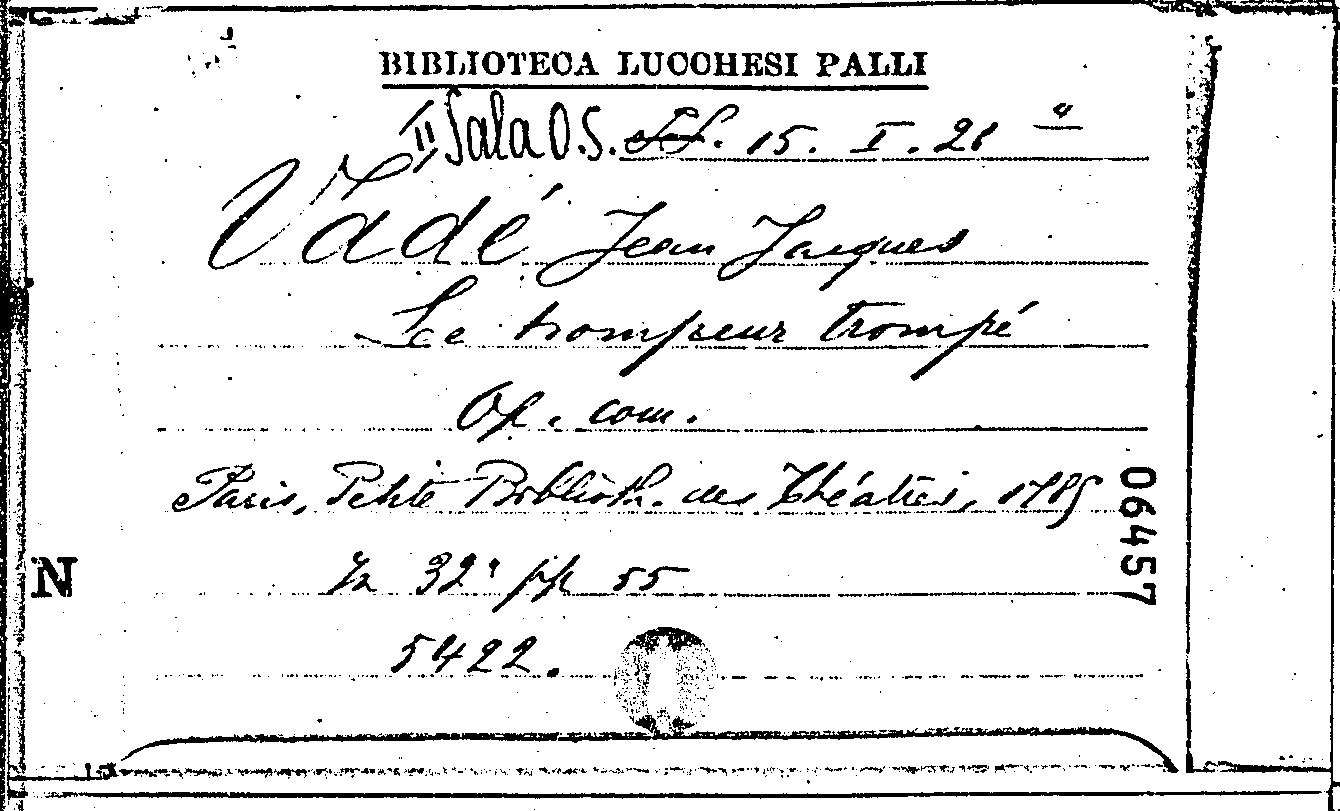 BIBLIOTECA LUCCHESI PALLI
II Sala O.S. 15. I. 21
Vadé Jean Jacques
Le trompeur trompé
Op. com.
Paris, Petite Biblioth. des Théatres, 1785
In 32° pp 55
5422.
N
06457